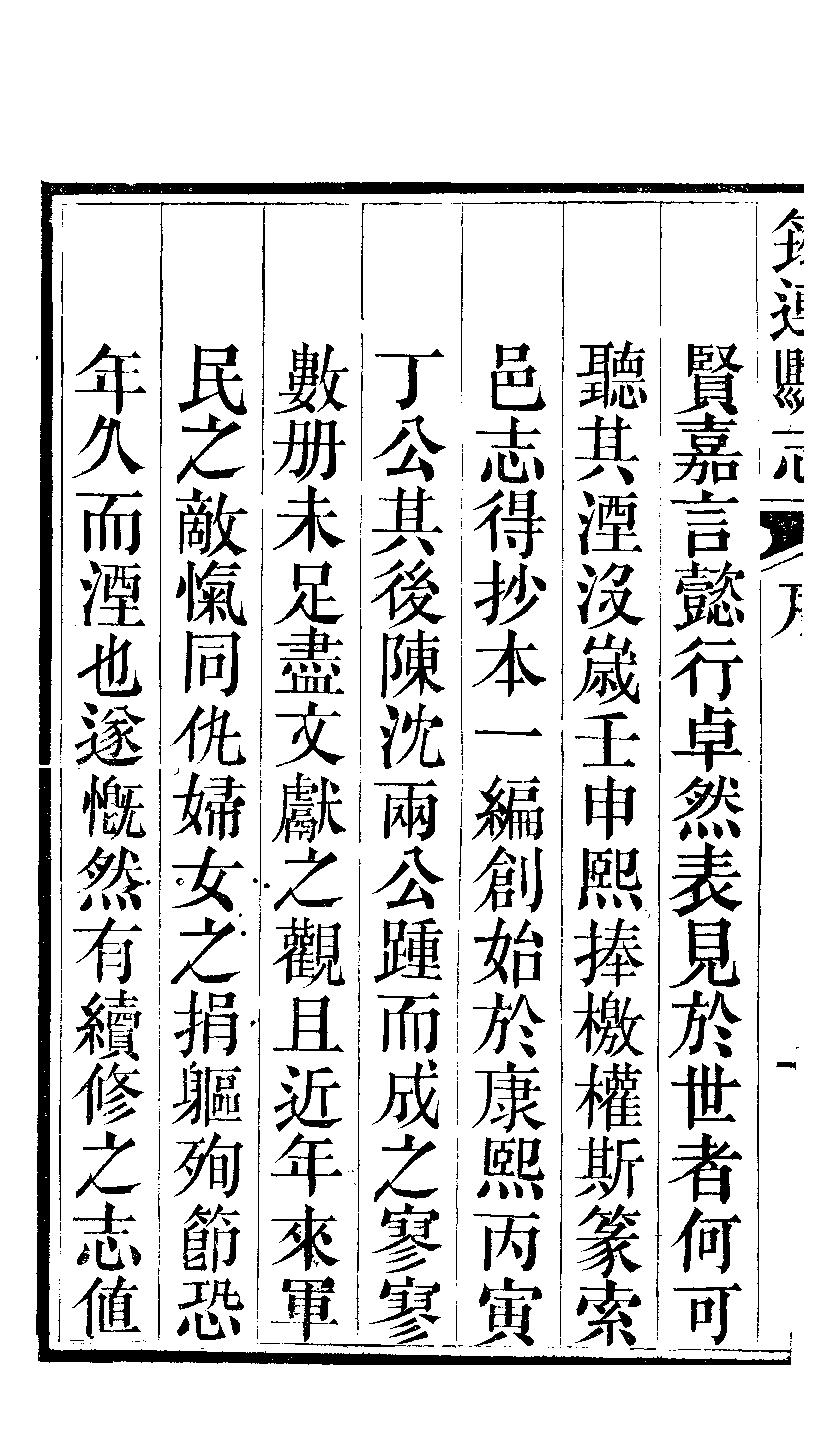 筠連縣志 序 一
賢嘉言懿行卓然表見於世者何可
聽其湮沒歲壬申熙捧檄權斯篆索
邑志得抄本一編創始於康熙丙寅
丁公其後陳沈兩公踵而成之寥寥
數册未足盡文獻之觀且近年來軍
民之敵愾同仇婦女之捐軀殉節恐
年久而湮也遂慨然有續修之志値